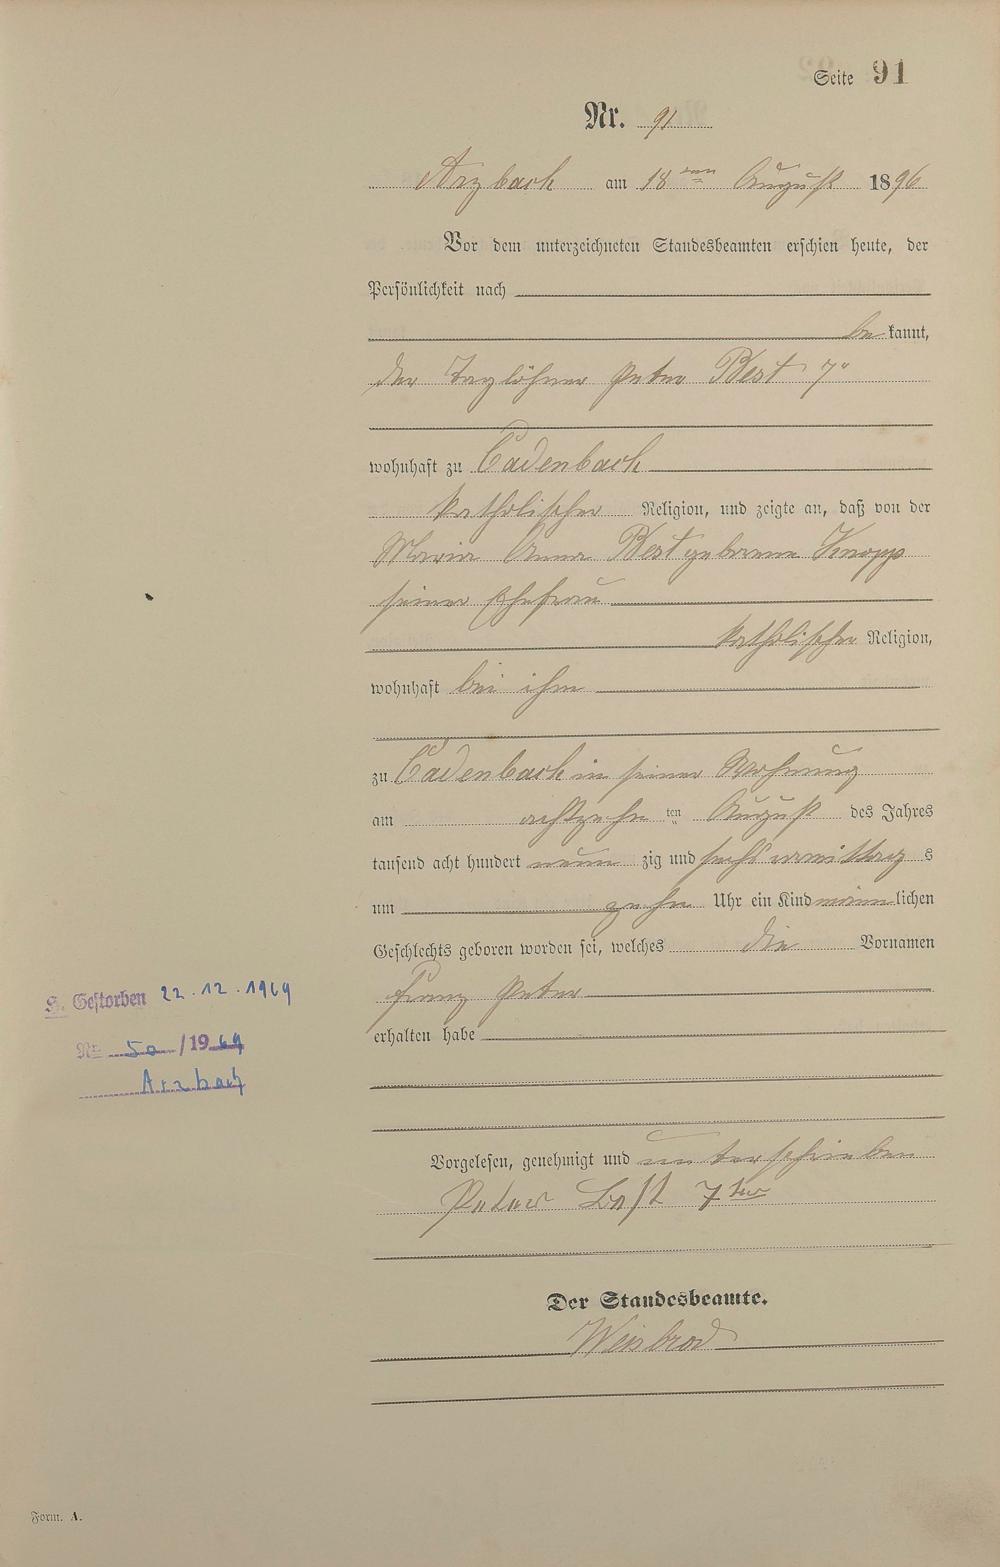 Seite 91
Nr. 91
Arzbach am 18ten August 1896
Vor dem unterzeichneten Standesbeamten erschien heute, der
Persönlichkeit nach
bekannt,
der Taglöhner Peter Best 7"
wohnhaft zu Cadenbach
katholischer Religion, und zeigte an, daß von der
Maria Anna Best geborene Knopp
seiner Ehefrau
katholischer Religion,
wohnhaft bei ihm
zu Cadenbach in seiner Wohnung
am achtzehnten August des Jahres
tausend acht hundert neunzig und sechs vormittags
um zehn Uhr ein Kind männlichen
Geschlechts geboren worden sei, welches die Vornamen
Franz Peter
erhalten habe
S. Gestorben 22.12.1969
Nr. 50/1969
Arzbach
Vorgelesen, genehmigt und unterschrieben
Peter Best 7ter
Der Standesbeamte.
Weisbrod
Form. A.